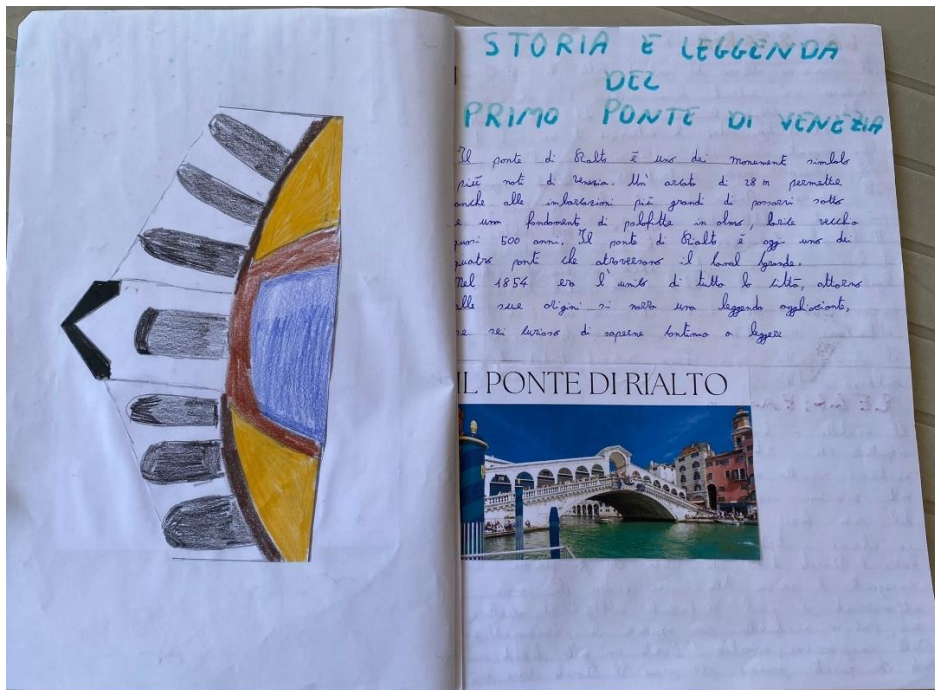 STORIA E LEGGENDA
DEL
PRIMO PONTE DI VENEZIA
Il ponte di Rialto è uno dei monumenti simbolo
più noti di Venezia. Un' arcata di 28 m permette
anche alle imbarcazioni più grandi di passarvi sotto
e una fondamenta di palafitte in olmo, larice vecchio
quasi 500 anni. Il ponte di Rialto è oggi uno dei
quattro ponti che attraversano il Canal Grande.
Nel 1854 era l'unito di tutta la città, attorno
alle sue origini si narra una leggenda agghiacciante,
se sei curioso di saperne continua a leggere
IL PONTE DI RIALTO